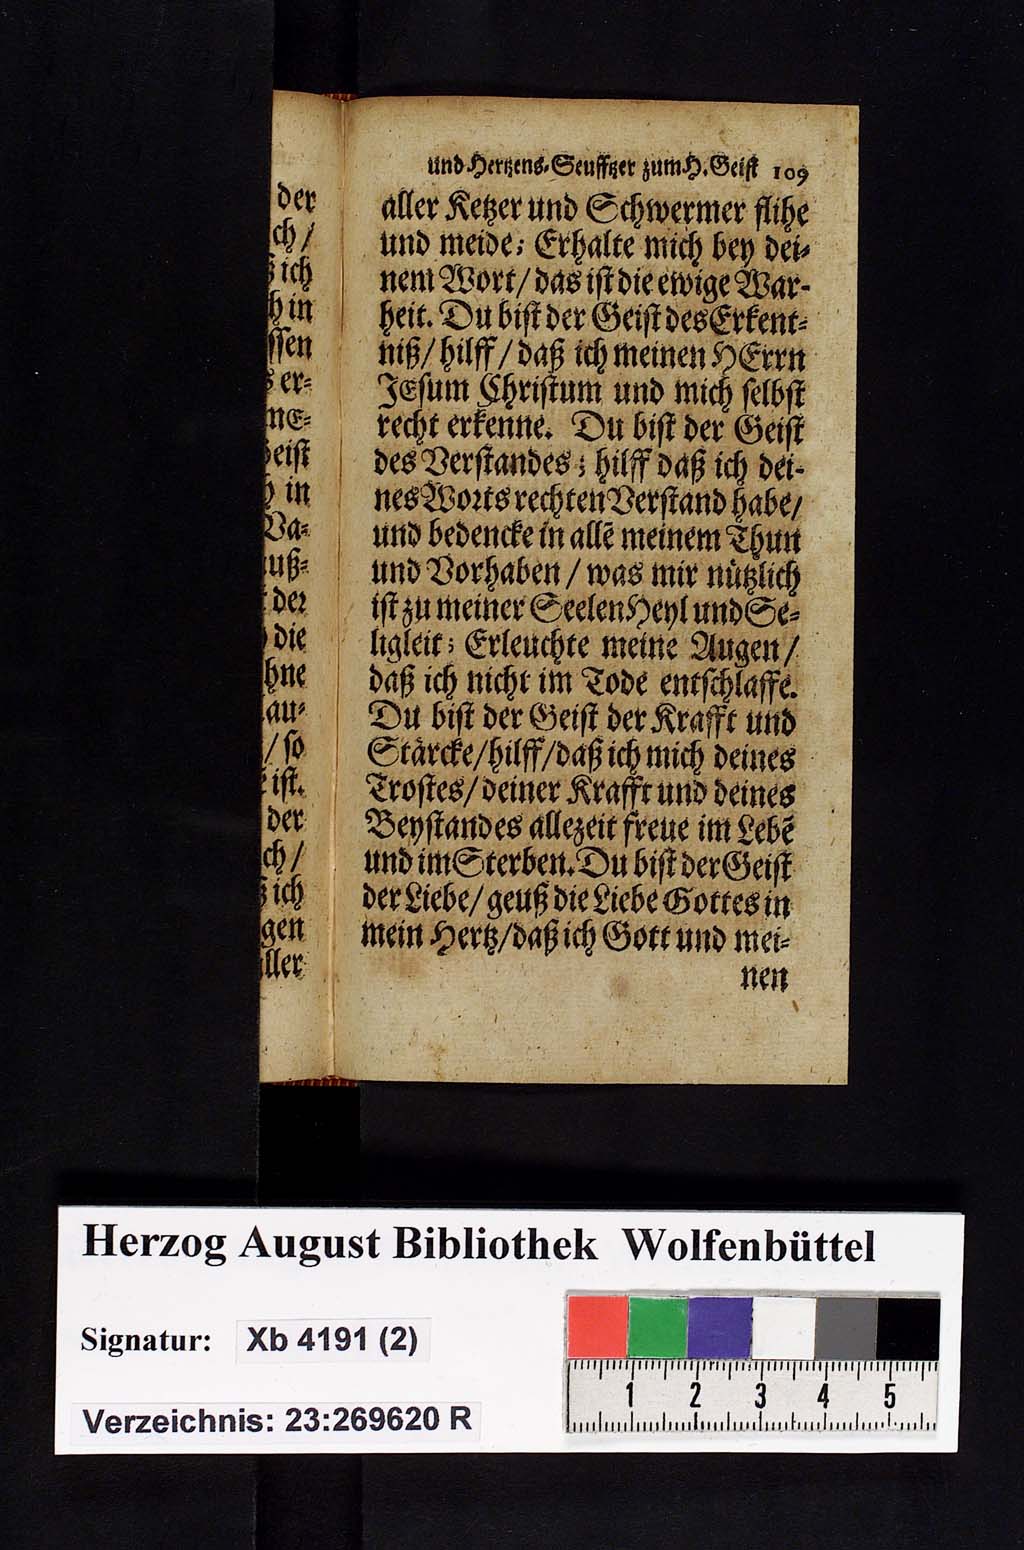 und Hertzens-Seufftzer zum H. Geist 109
aller Ketzer und Schwermer flihe
und meide; Erhalte mich bey dei-
nem Wort/ das ist die ewige War-
heit. Du bist der Geist des Erkent-
niß/ hilff/ daß ich meinen HErrn
JEsum Christum und mich selbst
recht erkenne. Du bist der Geist
des Verstandes; hilff daß ich dei-
nes Worts rechten Verstand habe/
und bedencke in allẽ meinem Thun
und Vorhaben / was mir nützlich
ist zu meiner Seelen Heyl und Se-
ligleit; Erleuchte meine Augen/
daß ich nicht im Tode entschlaffe.
Du bist der Geist der Krafft und
Stärcke/ hilff/ daß ich mich deines
Trostes/ deiner Krafft und deines
Beystandes allezeit freue im Lebẽ
und im Sterben. Du bist der Geist
der Liebe/ geuß die Liebe Gottes in
mein Hertz/ daß ich Gott und mei-
nen
der
ch/
ich
in
ssen
er-
eist
in
Va-
uß-
der
die
hne
au-
/ so
ist.
der
ch/
ich
gen
ller
Herzog August Bibliothek Wolfenbüttel
Signatur: Xb 4191 (2)
Verzeichnis: 23:269620 R
1 2 3 4 5